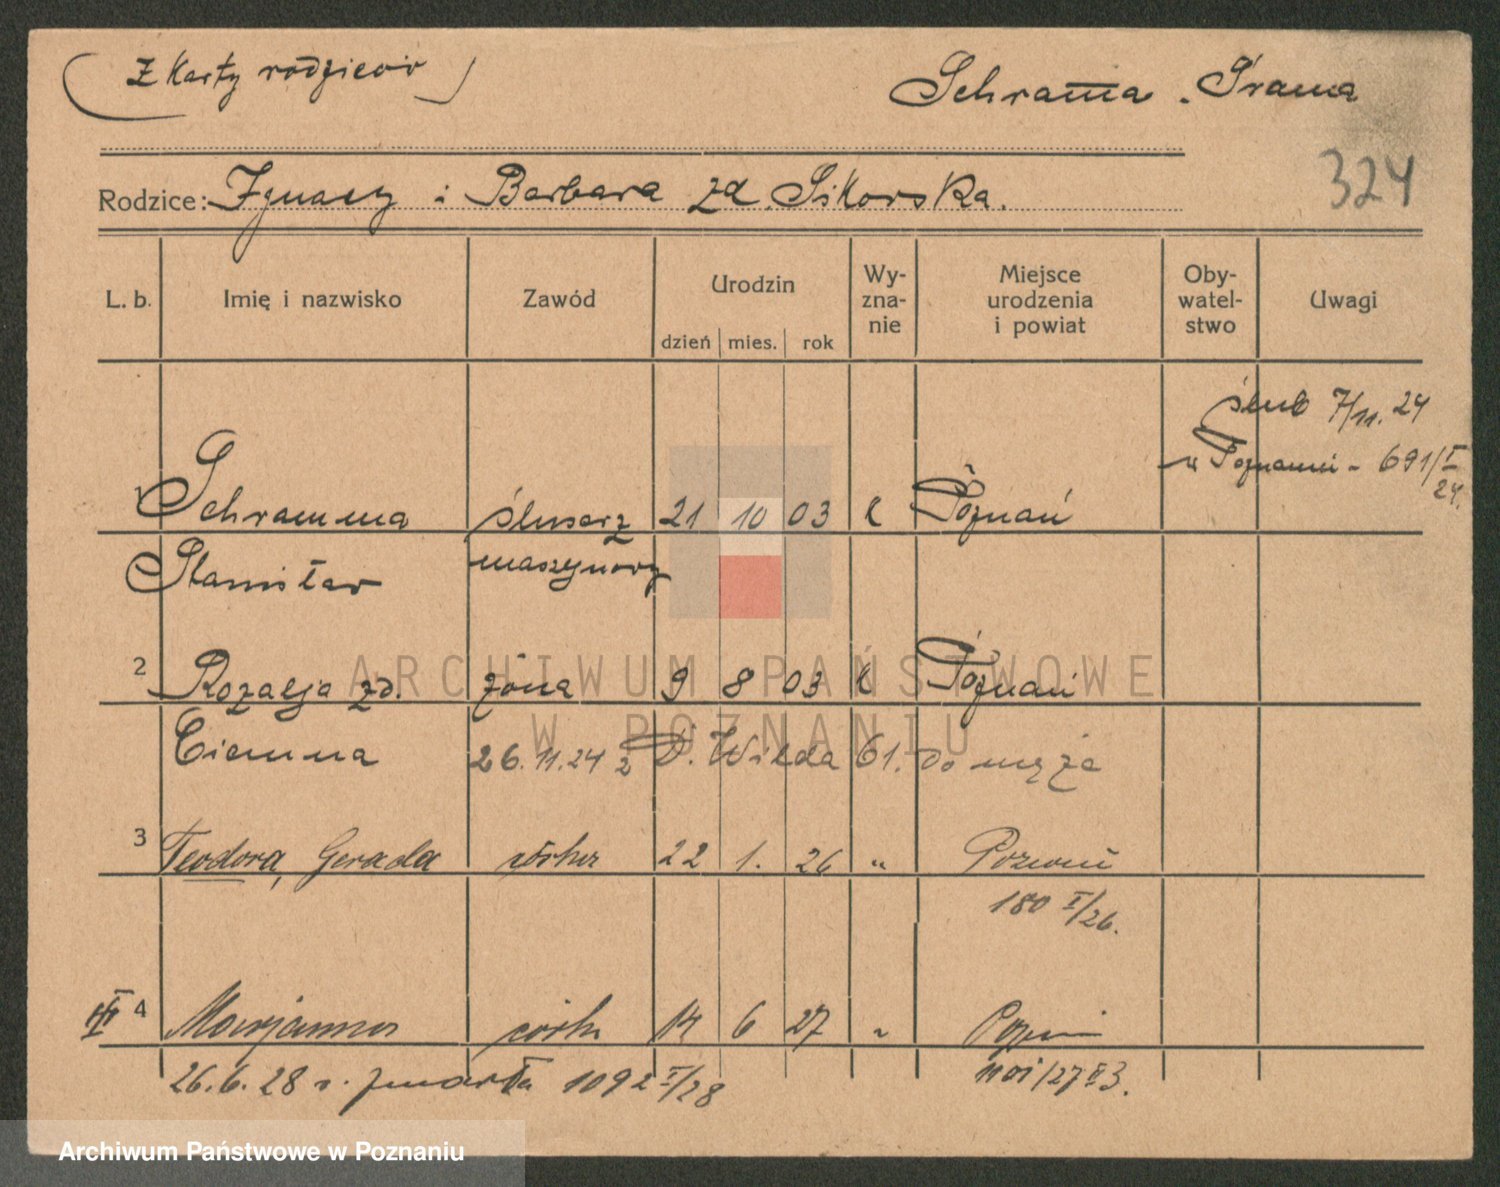 (Z Karty rodziców)
Schrama
324
Rodzice: Ignacy i Barbara zd. Sikorska.
L. b. Imię i nazwisko Zawód Urodzin dzień mies. rok Wy-zna-nie Miejsce urodzenia i powiat Oby-watel-stwo Uwagi
ślub 7/11. 24
w Poznaniu - 691/I 24.
1 Schramma ślusarz 21 10 03 k Poznań
Stanisław maszynowy
2 Rozalja zd. żona 9 8 03 k Poznań
Ciemna 26.11.24 z D. Wilda 61. do męża
3 Teodora, córka 22 1. 26 " Poznań
180 I/26.
4 Marjanna córka 14 6 27 "
26.6.28 r. zmarła 1092 I/28
ARCHIWUM PAŃSTWOWE
W POZNANIU
Archiwum Państwowe w Poznaniu